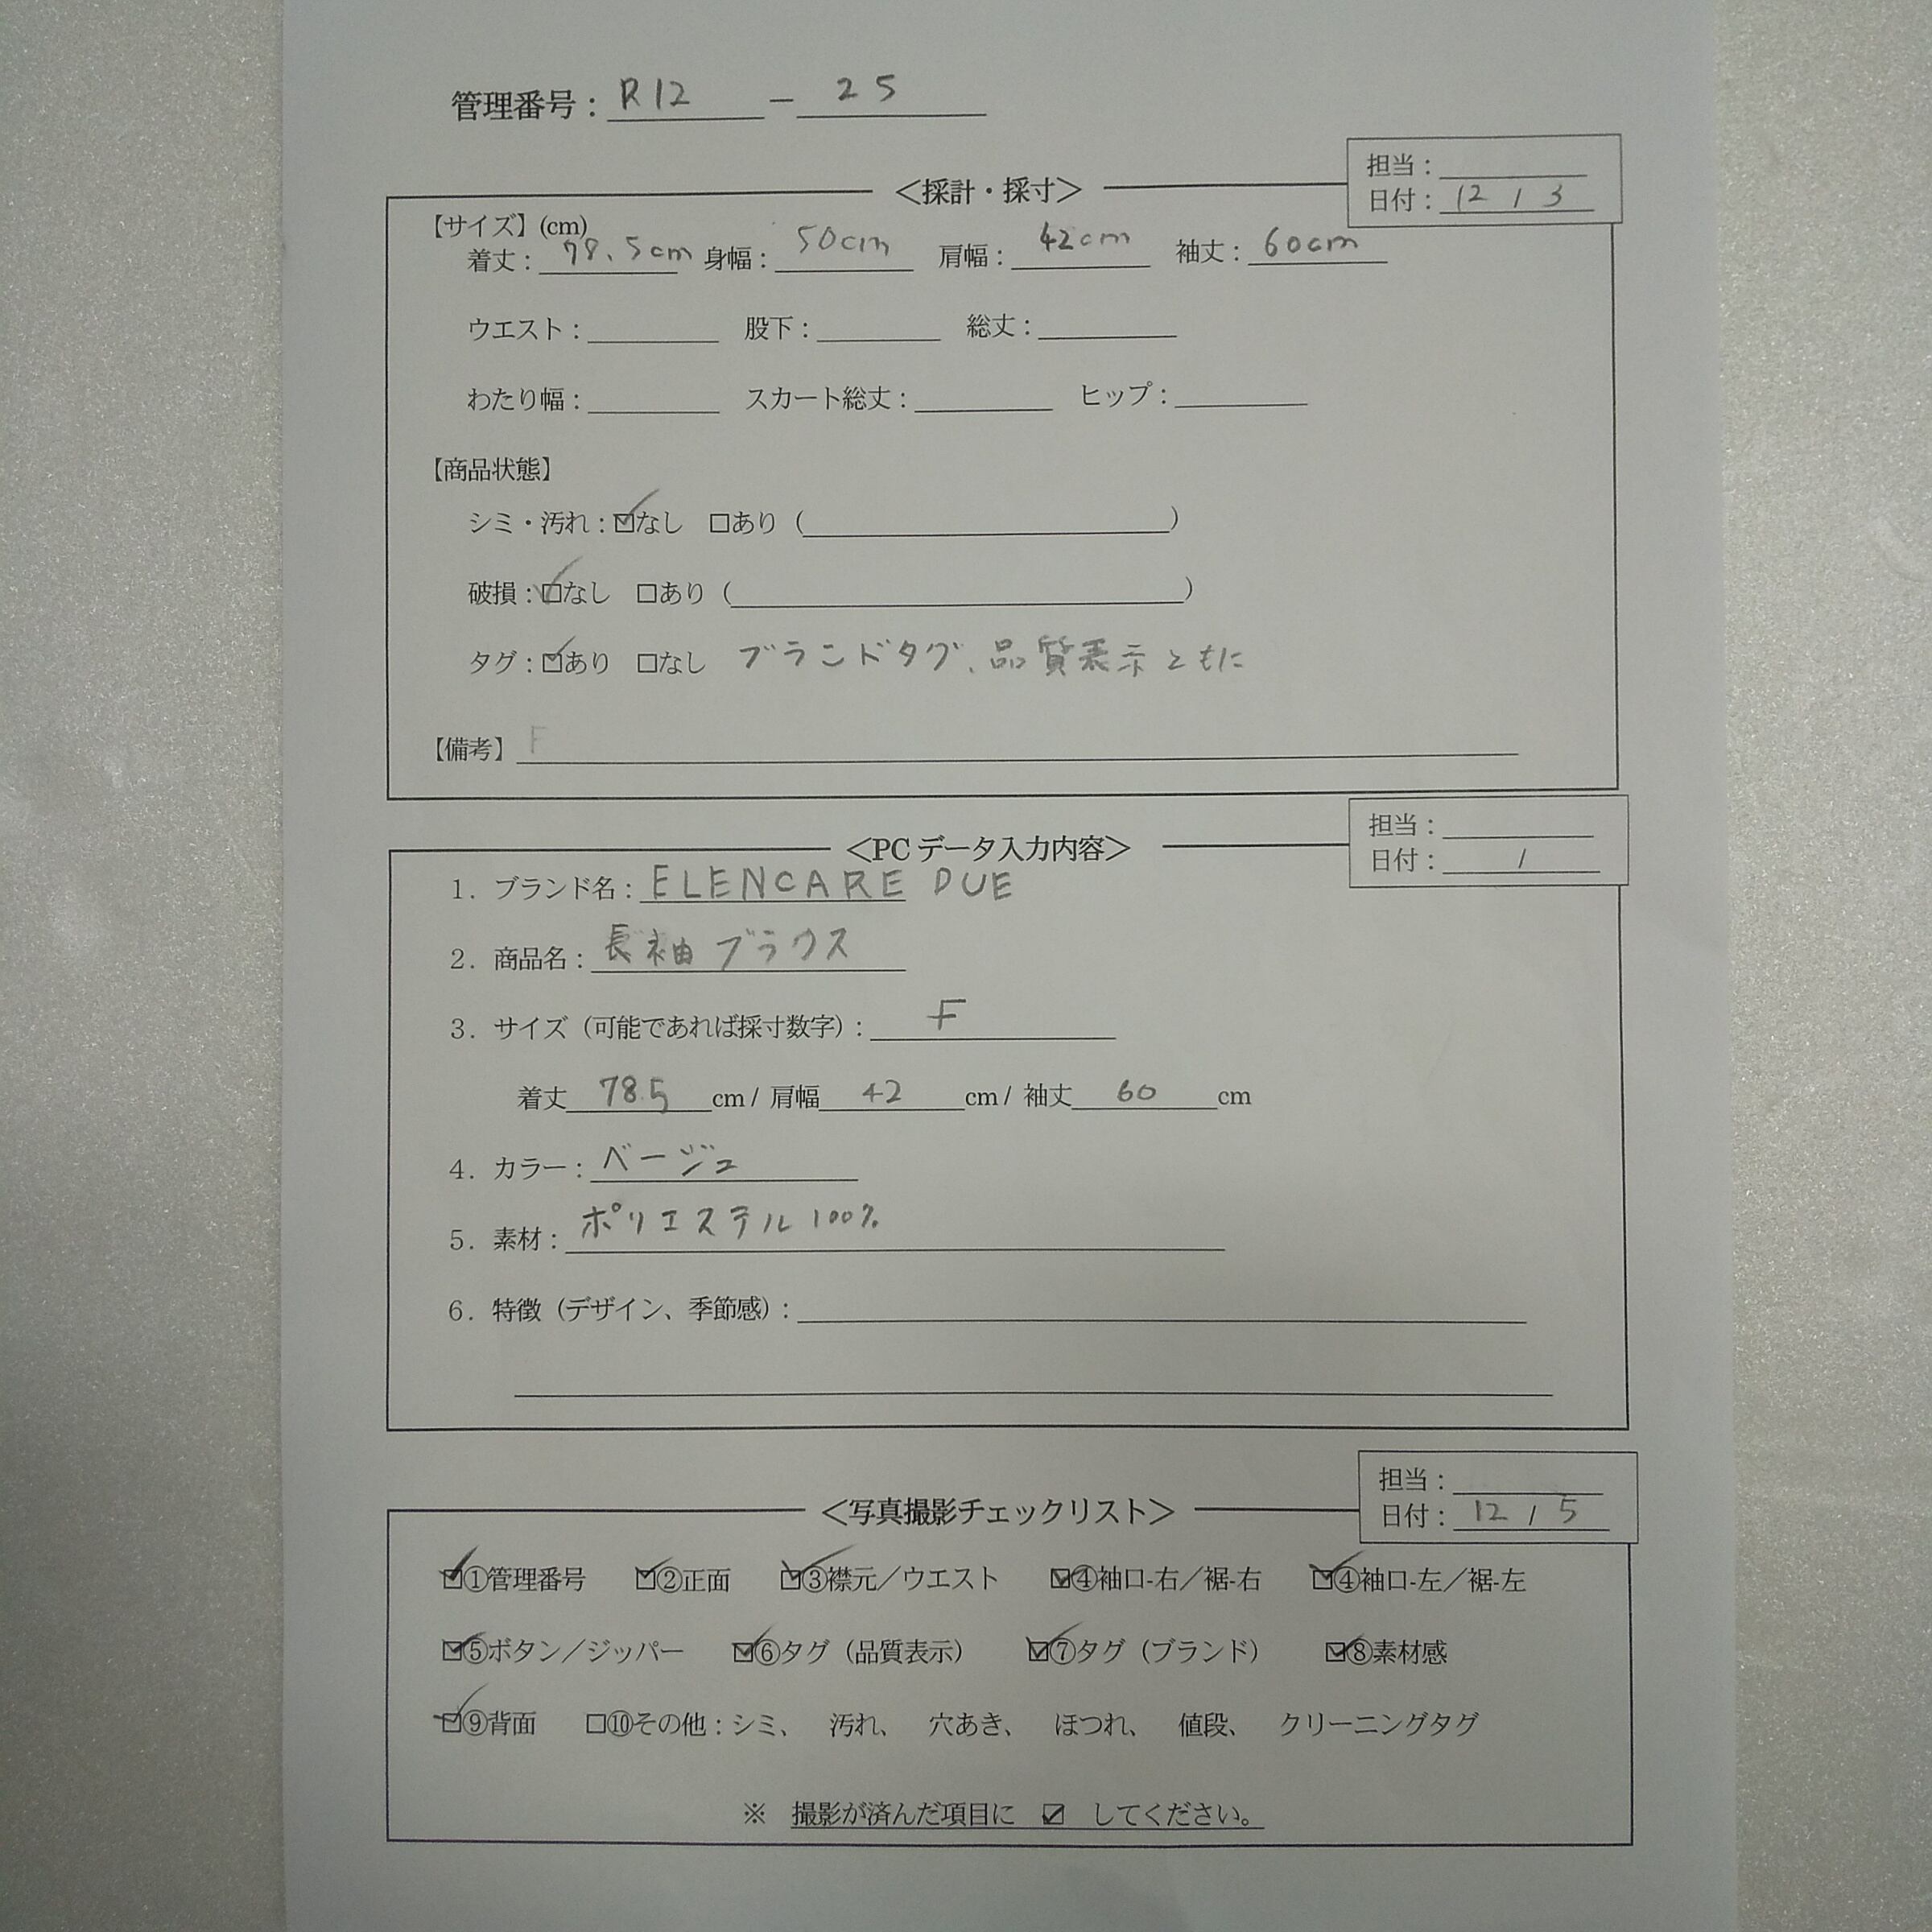 管理番号：R12 － 25
担当：
日付：12 / 3
＜採計・採寸＞
【サイズ】(cm)
着丈：78.5cm 身幅：50cm 肩幅：42cm 袖丈：60cm
ウエスト： 股下： 総丈：
わたり幅： スカート総丈： ヒップ：
【商品状態】
シミ・汚れ：☑なし □あり（ ）
破損：☑なし □あり（ ）
タグ：☑あり □なし ブランドタグ、品質表示ともに
【備考】F
担当：
日付： /
＜PCデータ入力内容＞
1．ブランド名：ELENCARE DUE
2．商品名：長袖ブラウス
3．サイズ（可能であれば採寸数字）：F
着丈 78.5 cm / 肩幅 42 cm / 袖丈 60 cm
4．カラー：ベージュ
5．素材：ポリエステル100%
6．特徴（デザイン、季節感）：
担当：
日付：12 / 5
＜写真撮影チェックリスト＞
☑①管理番号 ☑②正面 ☑③襟元／ウエスト ☑④袖口-右／裾-右 ☑④袖口-左／裾-左
☑⑤ボタン／ジッパー ☑⑥タグ（品質表示） ☑⑦タグ（ブランド） ☑⑧素材感
☑⑨背面 □⑩その他：シミ、 汚れ、 穴あき、 ほつれ、 値段、 クリーニングタグ
※ 撮影が済んだ項目に ☑ してください。